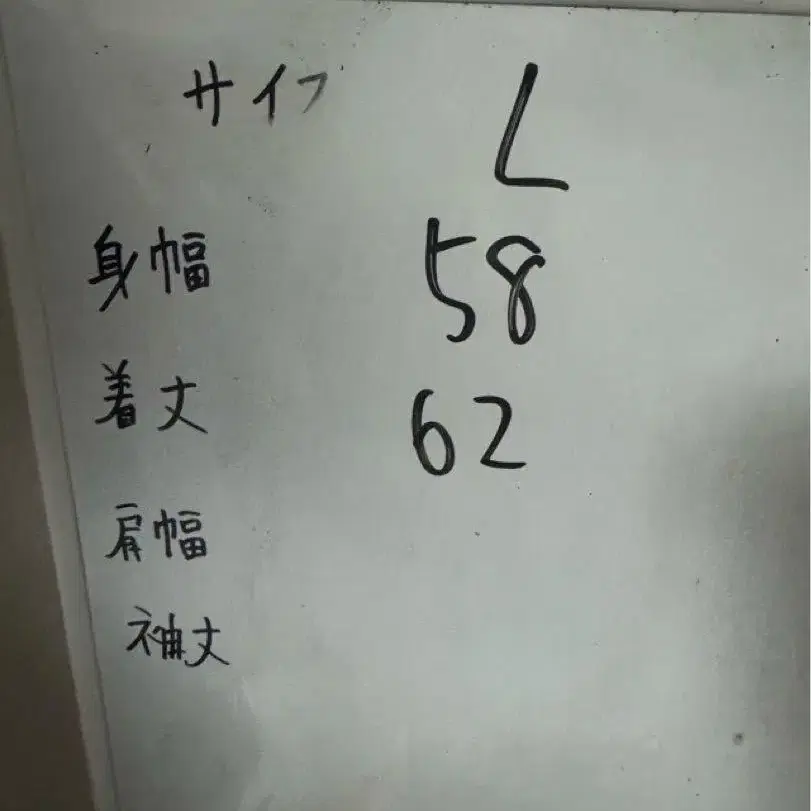 サイフ L
身幅 58
着丈 62
肩幅
袖丈